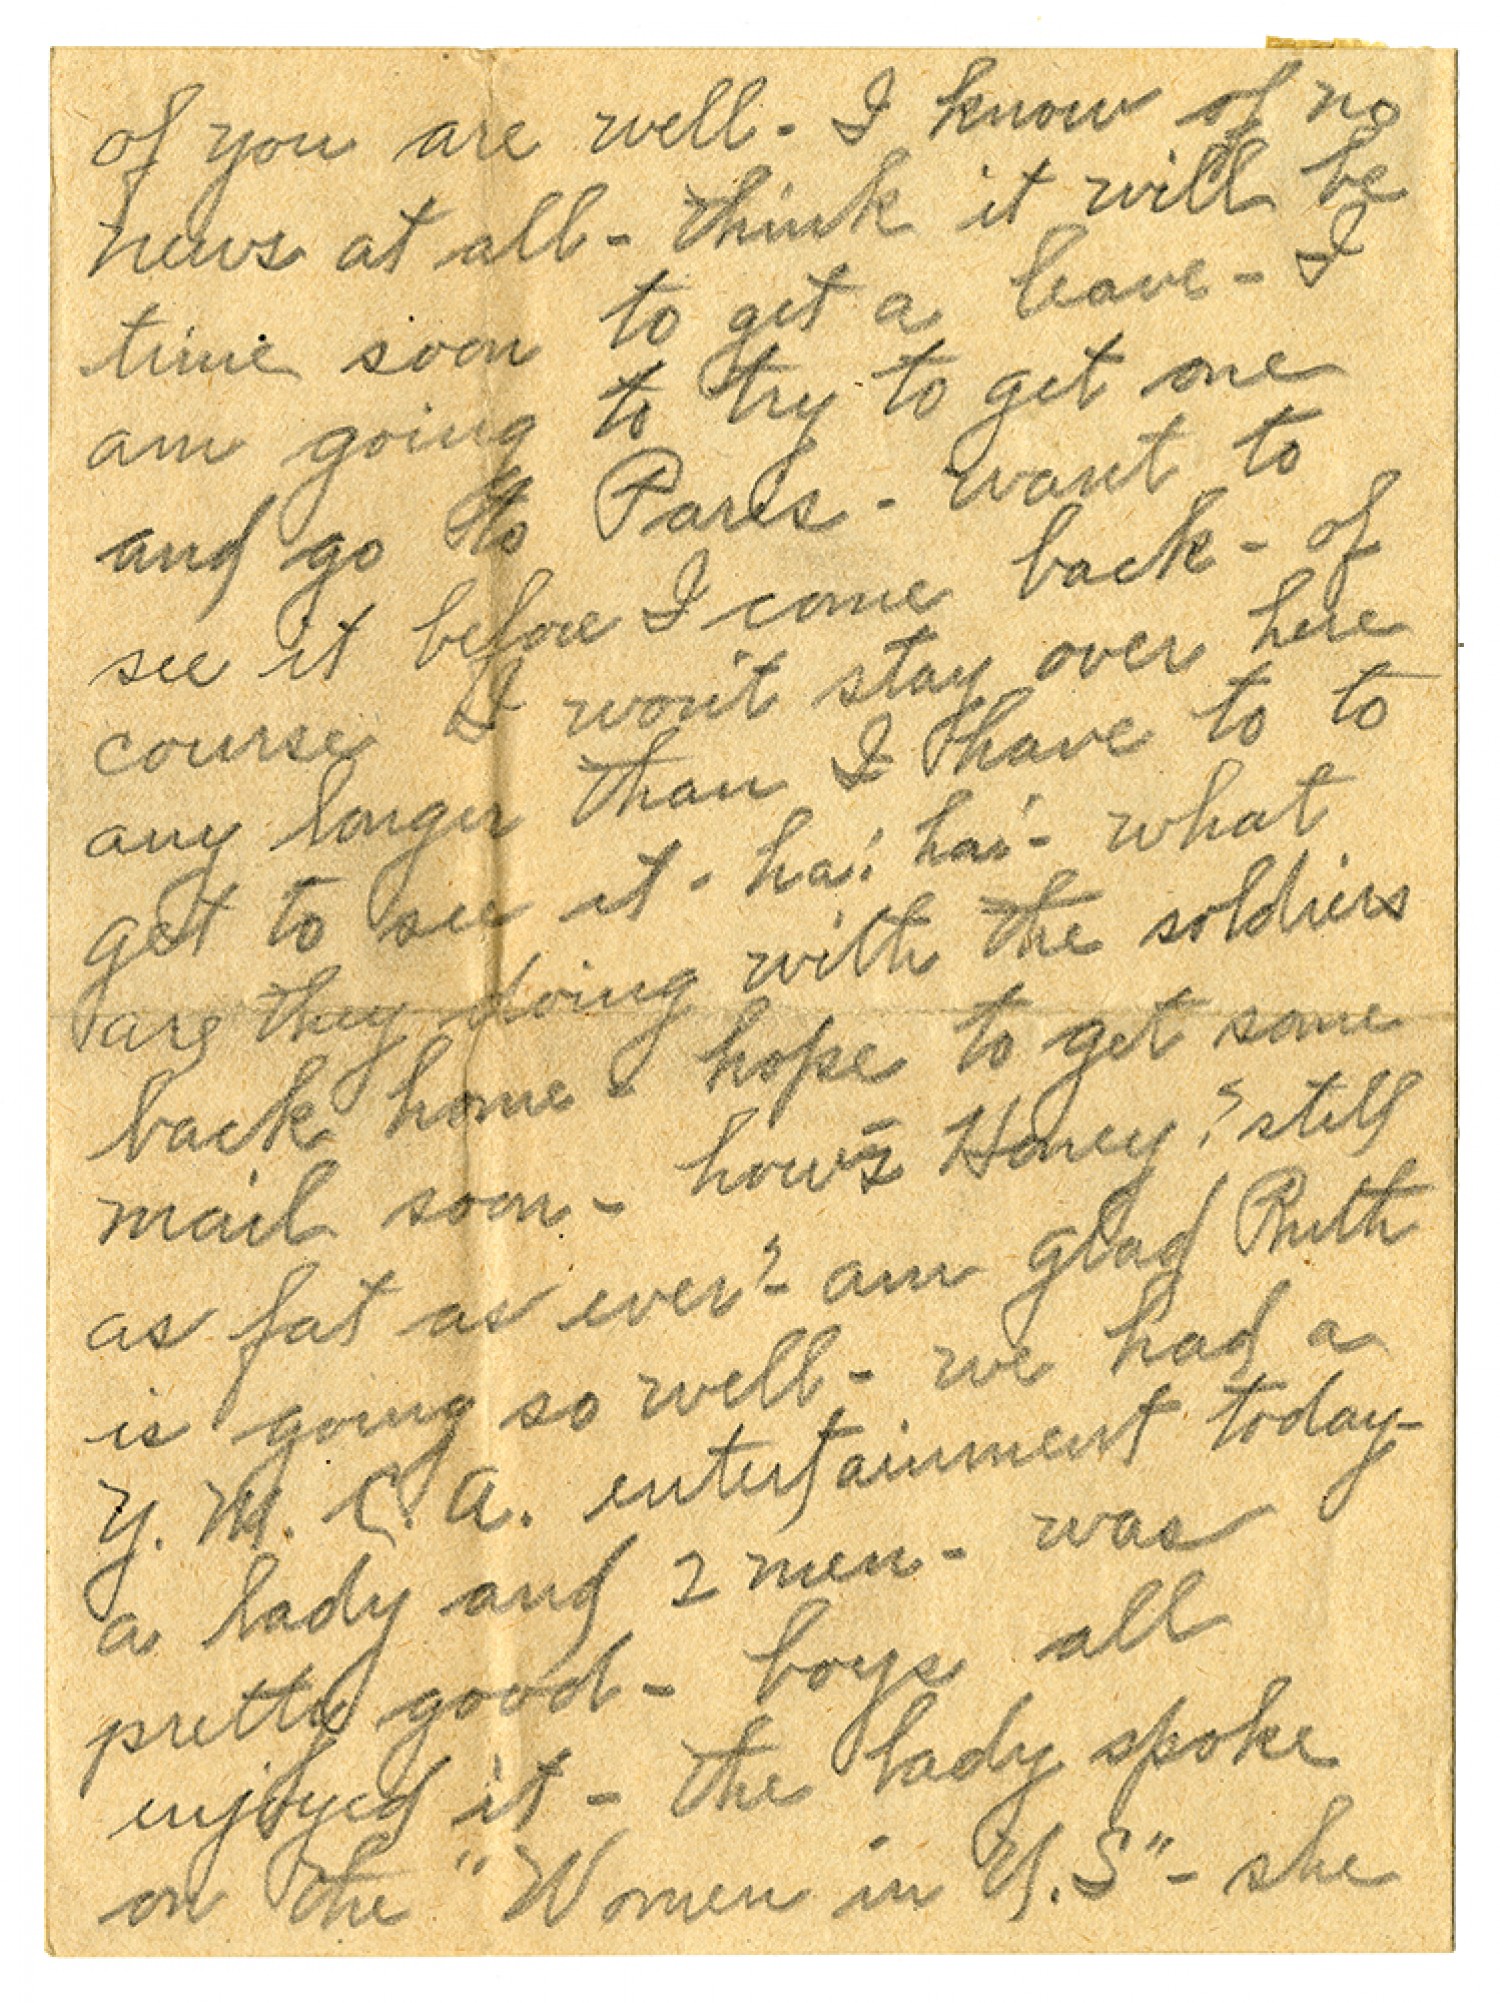 of you are well - I know of no
news at all - think it will be
time soon to get a leave - I
am going to try to get one
and go to Paris - want to
see it before I come back - of
course I won't stay over here
any longer than I have to to
get to see it - ha! ha! - what
are they doing with the soldiers
back home - hope to get some
mail soon - how's Honey? still
as fat as ever? - am glad Ruth
is going so well - we had a
Y. M. C. A. entertainment today -
a lady and 2 men - was
pretty good - boys all
enjoyed it - the lady spoke
on the "Women in U.S" - she